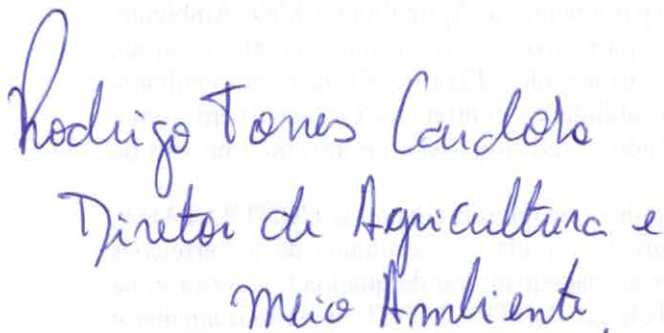 Rodrigo Torres Cardoso
Diretor de Agricultura e
Meio Ambiente.